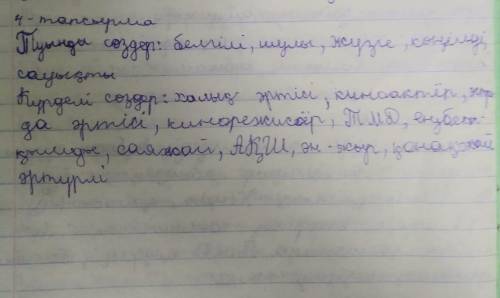 4-тапсырма
Туынды сөздер: белгілі, шулы, жүзге, көңілді,
сауықты
Күрделі сөздер: халық әртісі, киноактёр, хор
да әртісі, кинорежисёр, ТМД, еңбек
саяжай, АҚШ, ән-жыр, қонақжай
әртүрлі